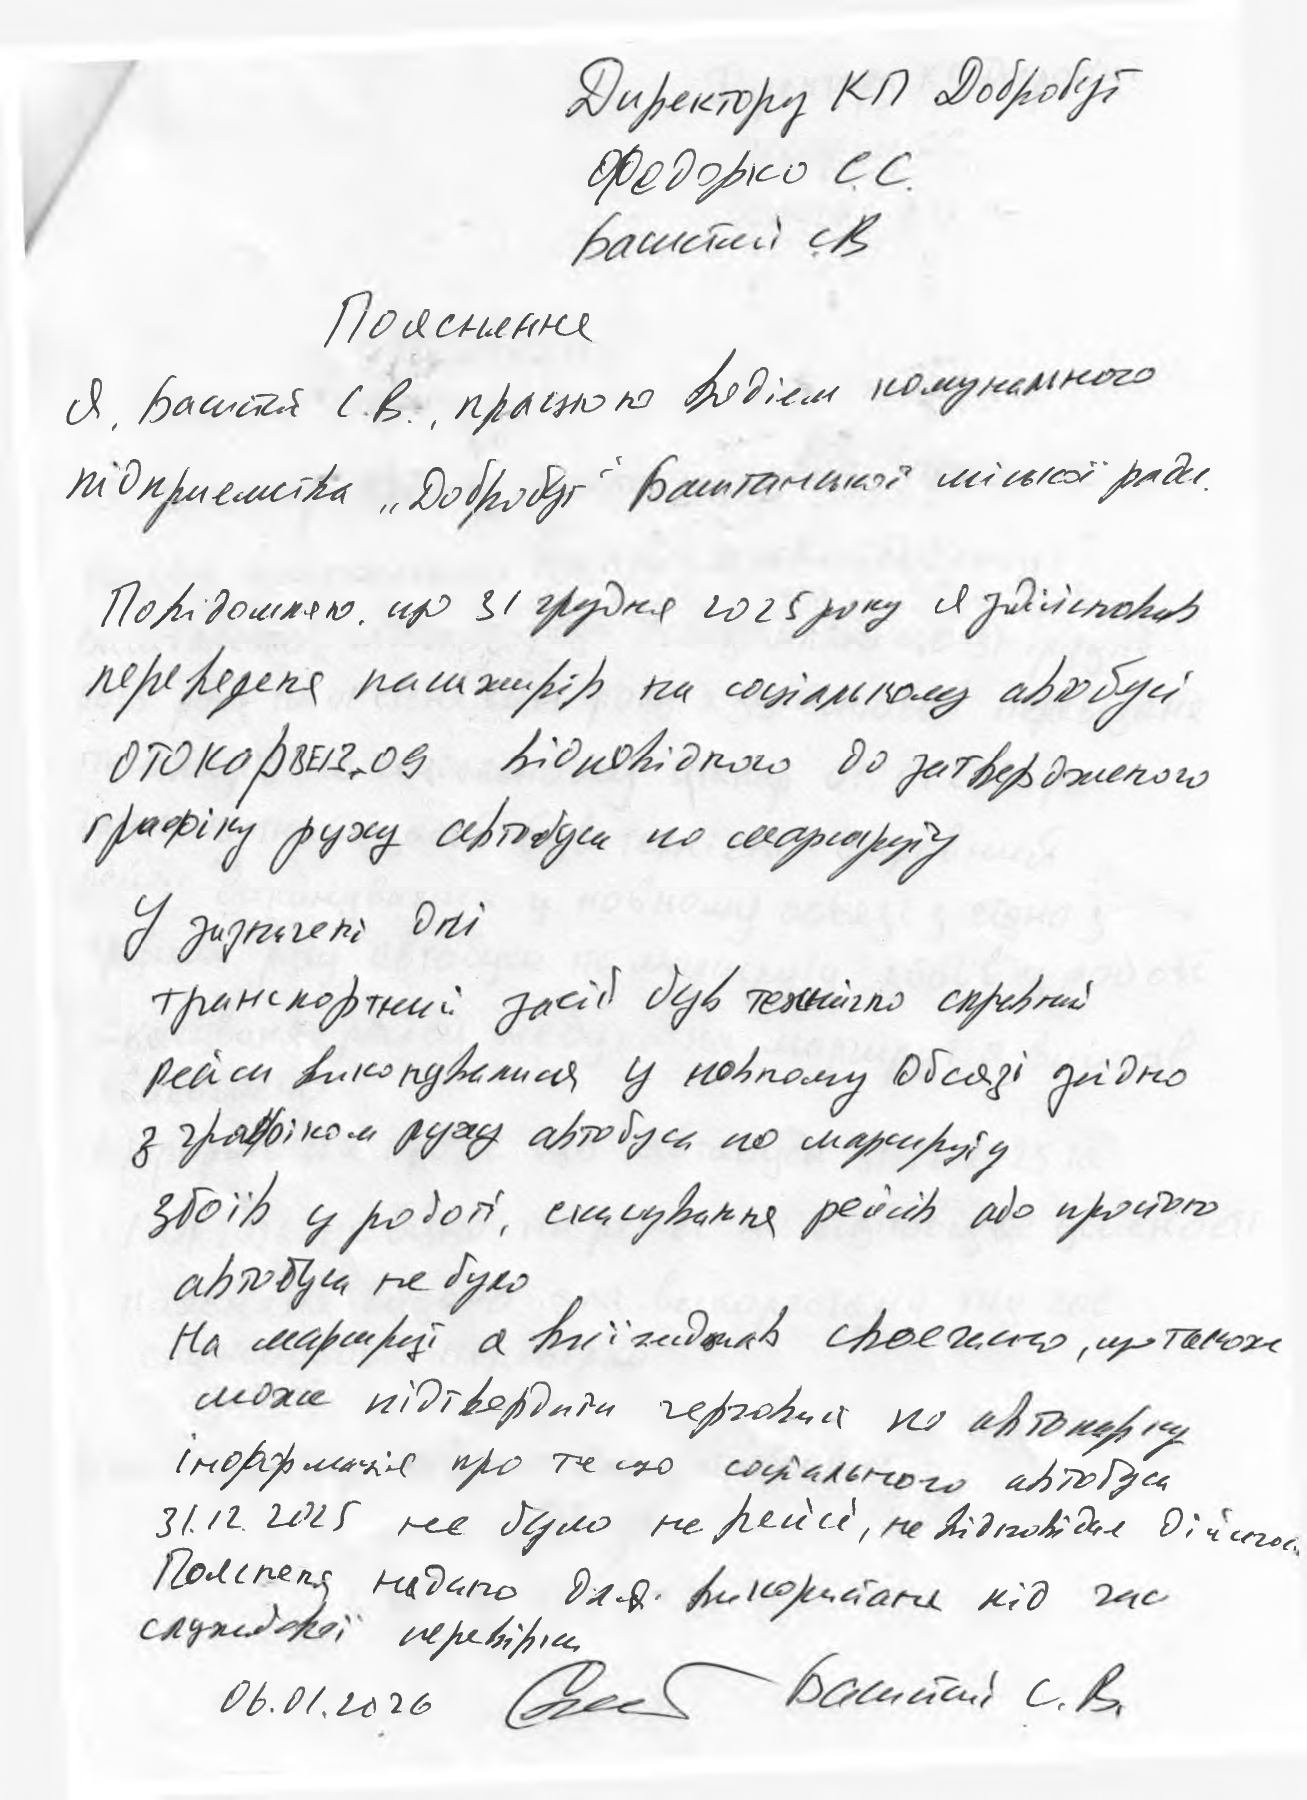 Директору КП Добробут
Федорко С.С.
Баштий С.В
Пояснення
Я, Баштий С.В., працюю водієм комунального
підприємства „Добробут" Баштанської міської ради.
Повідомляю, що 31 грудня 2025 року я здійснював
переведеня пасажирів на соціальному автобусі
ОТОКар ВЕ13-09 відповідного до затвердженого
графіку руху автобуса по маршруту
У зазначені дні
транспортний засіб був технічно справний
рейси виконувалися у повному обсязі згідно
з графіком руху автобуса по маршруту
збоїв у роботі, скасування рейсів або простого
автобуса не було
На маршруті я виїзжав своєчасно, що також
може підтвердити черговий по автопарку
інформація про те що соціального автобуса
31.12.2025 не було не рейсі, не відповідає дійснос
Поясненя надано для використаня під час
службової перевірки
06.01.2026 Баштий С.В.